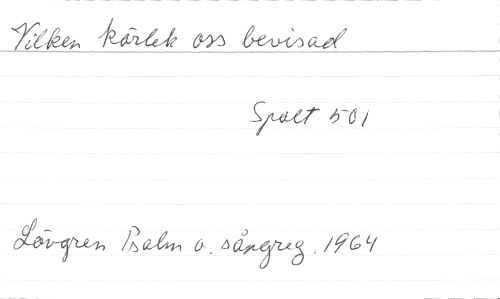 Vilken kärlek oss bevisad
Spalt 501
Lövgren Psalm o. sångreg. 1964